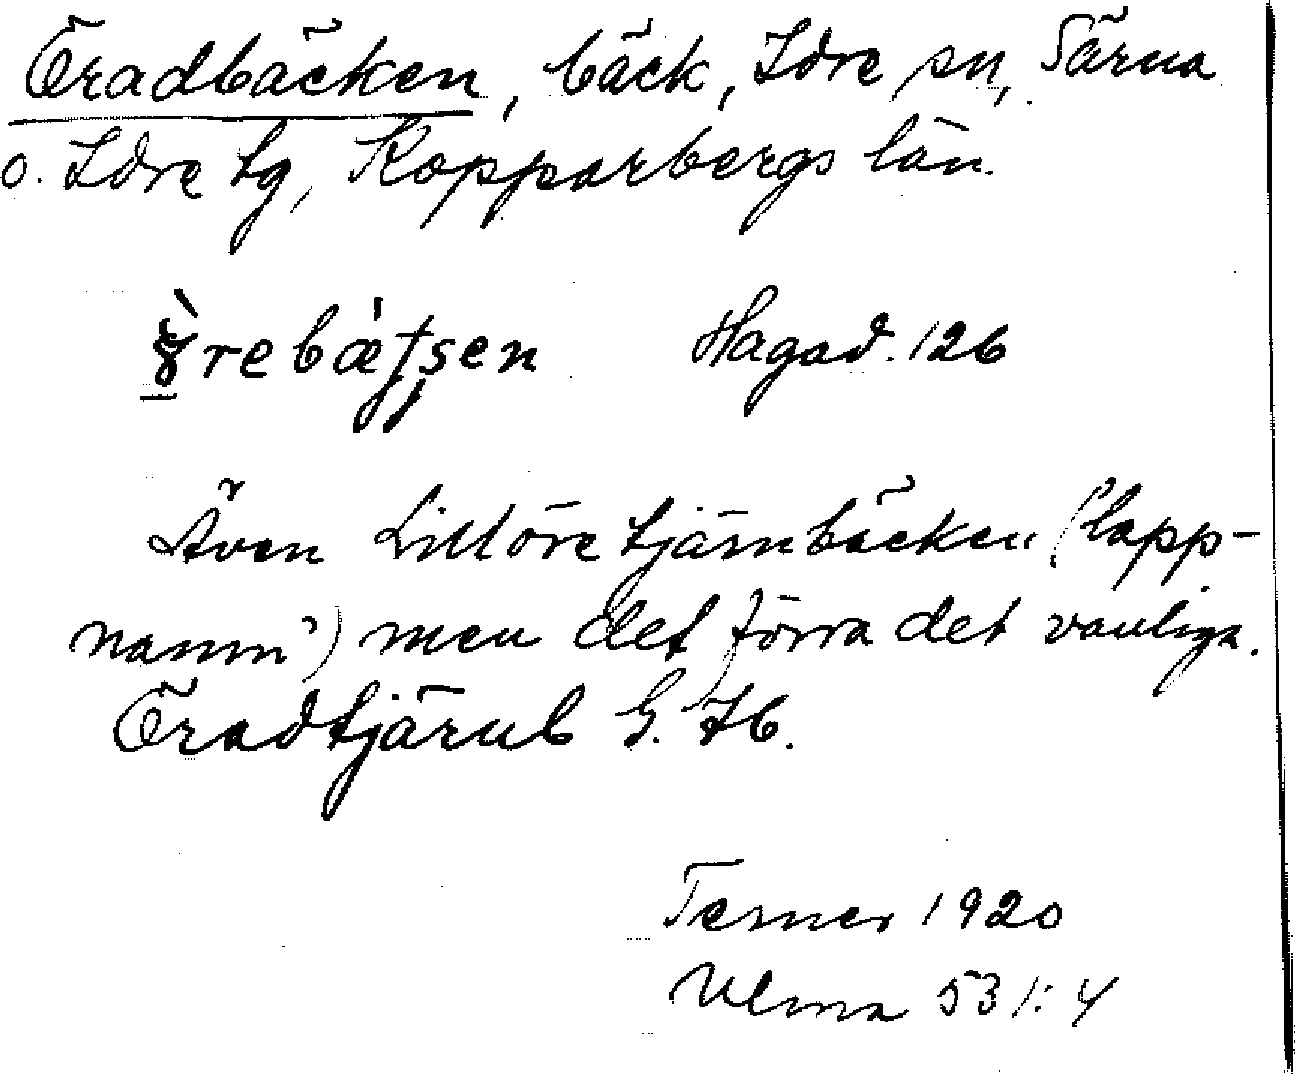 Öradbäcken, bäck, Idre sn, Särna
o. Idre tg, Kopparbergs län.
rebæ Hagad. 126
Även Lillöretjärnbäcken ("lapp-
namn") men det förra det vanliga.
Öradtjärnb G. 76.
Terner 1920
Ulma 531:4